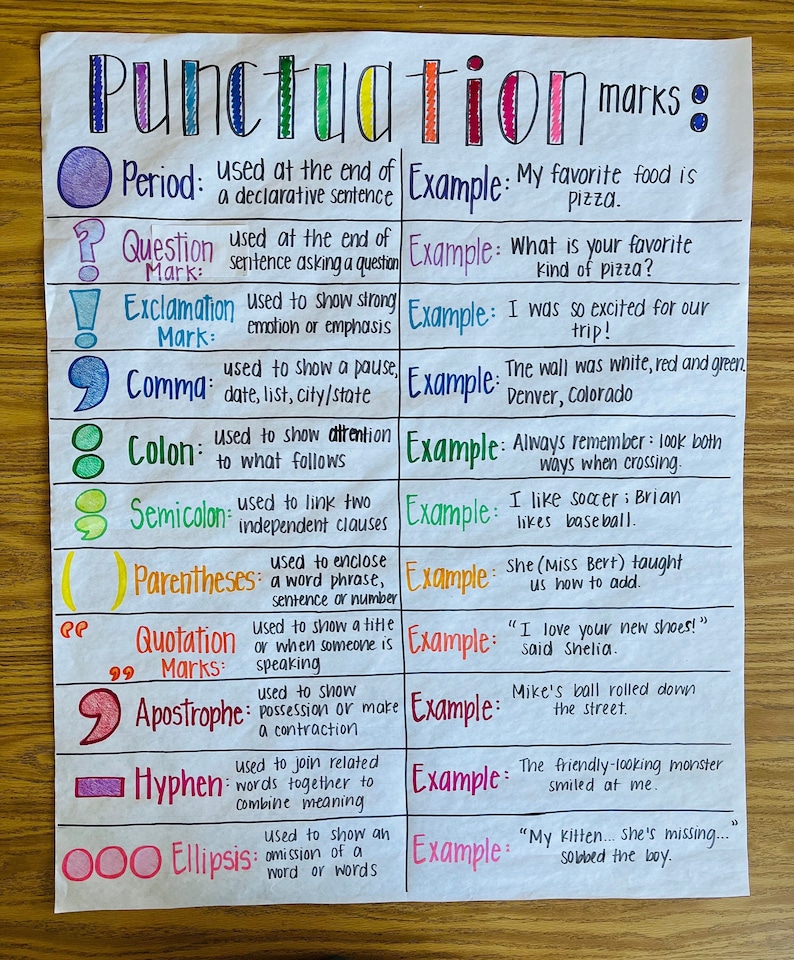 Punctuation marks:
Period: used at the end of
a declarative sentence
Example: My favorite food is
pizza.
Question
Mark:
used at the end of
sentence asking a question
Example: What is your favorite
kind of pizza?
Exclamation
Mark:
used to show strong
emotion or emphasis
Example: I was so excited for our
trip!
Comma: used to show a pause,
date, list, city/state
Example: The wall was white, red and green.
Denver, Colorado
Colon: used to show attention
to what follows
Example: Always remember: look both
ways when crossing.
Semicolon: used to link two
independent clauses
Example: I like soccer; Brian
likes baseball.
( ) Parentheses: used to enclose
a word phrase,
sentence or number
Example: She (Miss Bert) taught
us how to add.
“ ” Quotation
Marks:
used to show a title
or when someone is
speaking
Example: “I love your new shoes!”
said Shelia.
Apostrophe: used to show
possession or make
a contraction
Example: Mike's ball rolled down
the street.
Hyphen: used to join related
words together to
combine meaning
Example: The friendly-looking monster
smiled at me.
Ellipsis: used to show an
omission of a
word or words
Example: “My kitten... she's missing...”
sobbed the boy.